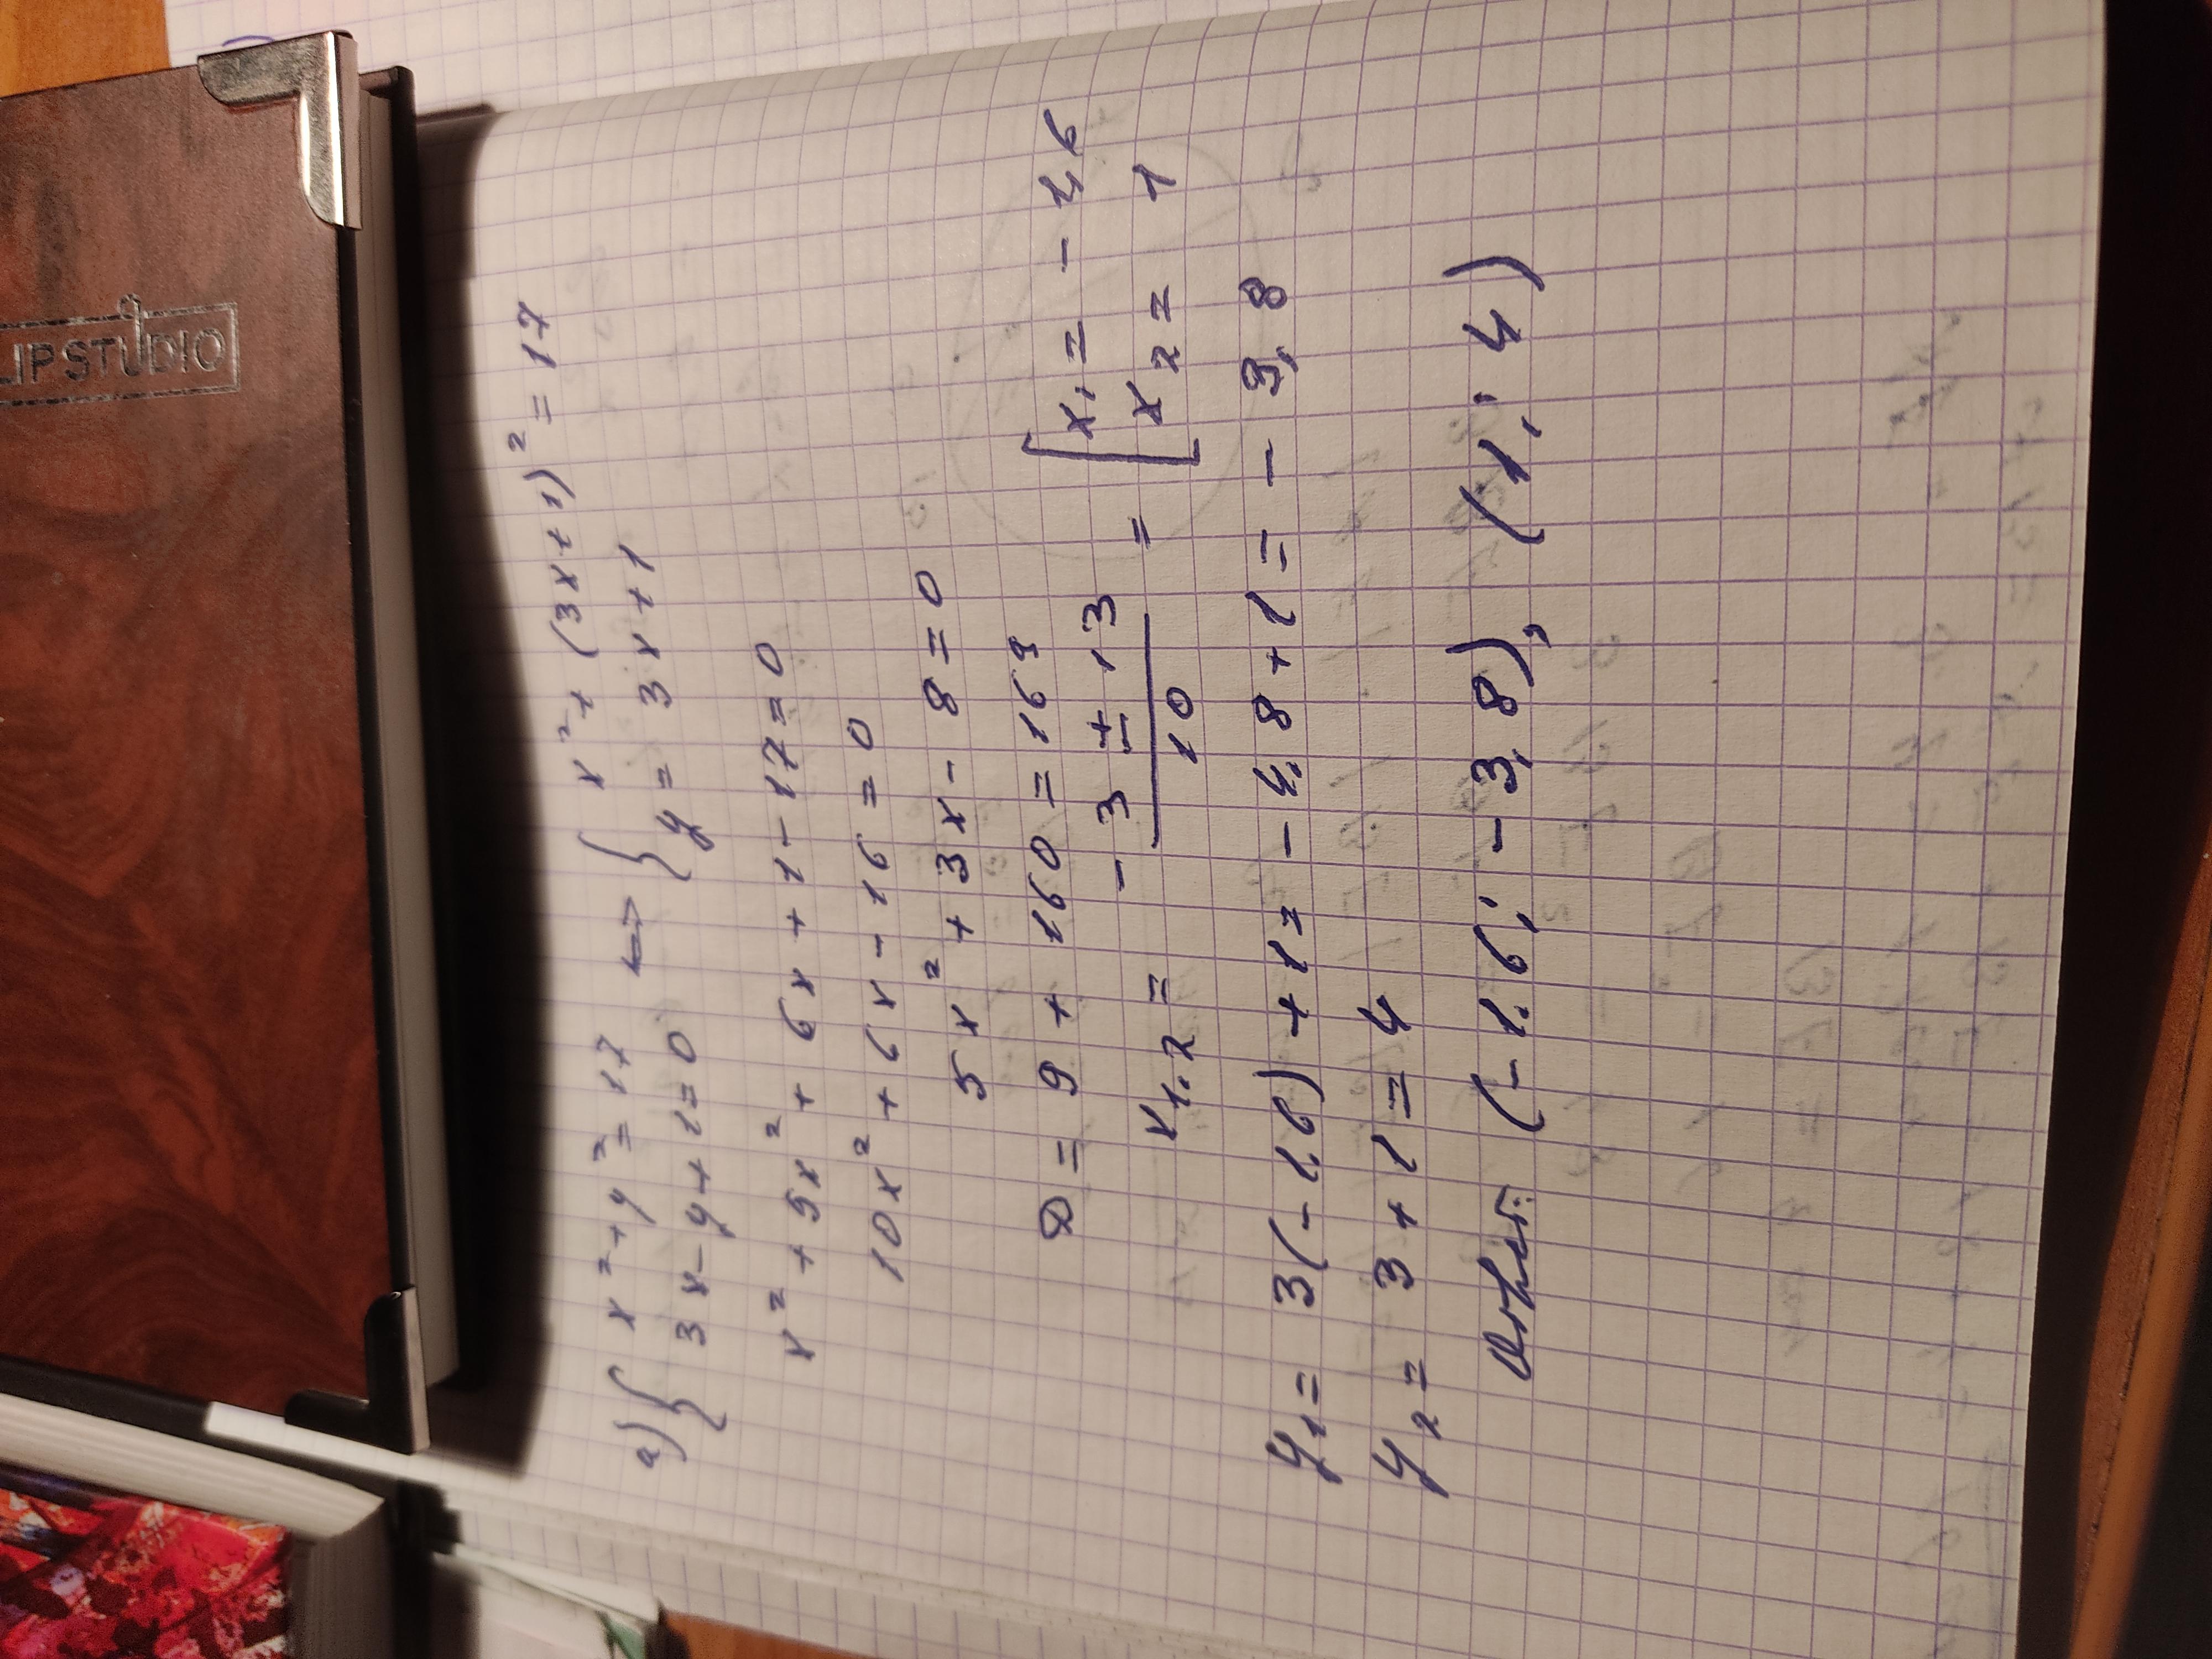 LIPSTUDIO
а) { x² + y² = 17 <=> { x² + (3x+1)² = 17
3x - y + 1 = 0 y = 3x + 1
x² + 9x² + 6x + 1 - 17 = 0
10x² + 6x - 16 = 0
5x² + 3x - 8 = 0
D = 9 + 160 = 169
x₁,₂ = (-3 ± 13)/10 = [ x₁ = -1,6
x₂ = 1
y₁ = 3(-1,6) + 1 = -4,8 + 1 = -3,8
y₂ = 3 + 1 = 4
Ответ: (-1,6; -3,8), (1; 4)